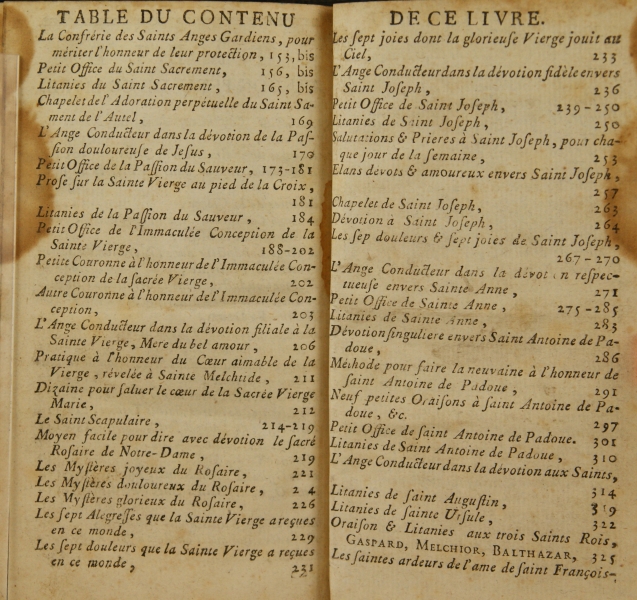 TABLE DU CONTENU
La Confrérie des Saints Anges Gardiens, pour
mériter l'honneur de leur protection, 153, bis
Petit Office du Saint Sacrement, 156, bis
Litanies du Saint Sacrement, 165, bis
Chapelet de l'Adoration perpétuelle du Saint Sa-
ment de l'Autel, 169
L'Ange Conducteur dans la dévotion de la Pas-
sion douloureuse de Jesus, 170
Petit Office de la Passion du Sauveur, 173-181
Prose sur la Sainte Vierge au pied de la Croix,
181
Litanies de la Passion du Sauveur, 184
Petit Office de l'Immaculée Conception de la
Sainte Vierge, 188-202
Petite Couronne à l'honneur de l'Immaculée Con-
ception de la sacrée Vierge, 202
Autre Couronne à l'honneur de l'Immaculée Con-
ception, 203
L'Ange Conducteur dans la dévotion filiale à la
Sainte Vierge, Mere du bel amour, 206
Pratique à l'honneur du Cœur aimable de la
Vierge, révelée à Sainte Melchtide, 211
Dizaine pour saluer le cœur de la Sacrée Vierge
Marie, 212
Le Saint Scapulaire, 214-219
Moyen facile pour dire avec dévotion le sacré
Rosaire de Notre-Dame, 219
Les Mystères joyeux du Rosaire, 221
Les Mystères douloureux du Rosaire, 2 4
Les Mystères glorieux du Rosaire, 226
Les sept Alegresses que la Sainte Vierge a reçues
en ce monde, 229
Les sept douleurs que la Sainte Vierge a reçues
en ce monde, 231
DE CE LIVRE.
Les sept joies dont la glorieuse Vierge jouit au
Ciel, 233
L'Ange Conducteur dans la dévotion fidèle envers
Saint Joseph, 236
Petit Office de Saint Joseph, 239-250
Litanies de Saint Joseph, 250
Salutations & Prieres à Saint Joseph, pour cha-
que jour de la semaine, 253
Elans dévots & amoureux envers Saint Joseph,
257
Chapelet de Saint Joseph, 263
Dévotion à Saint Joseph, 264
Les sep douleurs & sept joies de Saint Joseph,
267-270
L'Ange Conducteur dans la dévot n respec-
tueuse envers Sainte Anne, 271
Petit Office de Sainte Anne, 275-285
Litanies de Sainte Anne, 283
Dévotion singuliere envers Saint Antoine de Pa-
doue, 286
Méthode pour faire la neuvaine à l'honneur de
saint Antoine de Padoue, 291
Neuf petites Oraisons à saint Antoine de Pa-
doue, &c. 297
Petit Office de saint Antoine de Padoue. 301
Litanies de Saint Antoine de Padoue, 310
L'Ange Conducteur dans la dévotion aux Saints,
314
Litanies de saint Augustin, 319
Litanies de sainte Ursule, 322
Oraison & Litanies aux trois Saints Rois,
GASPARD, MELCHIOR, BALTHAZAR, 325
Les saintes ardeurs de l'ame de saint François-